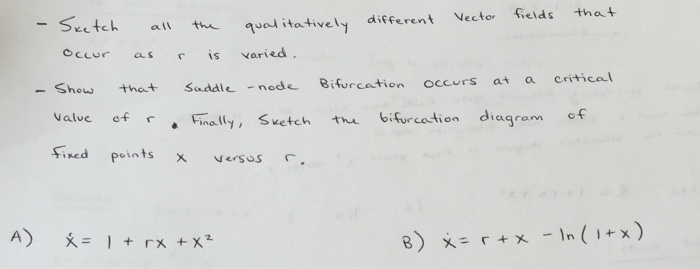 - Sketch all the qualitatively different Vector fields that
occur as r is varied.
- Show that Saddle-node Bifurcation occurs at a critical
value of r. Finally, Sketch the bifurcation diagram of
fixed points x versus r.
A) ẋ = 1 + rx + x²
B) ẋ = r + x - ln(1+x)